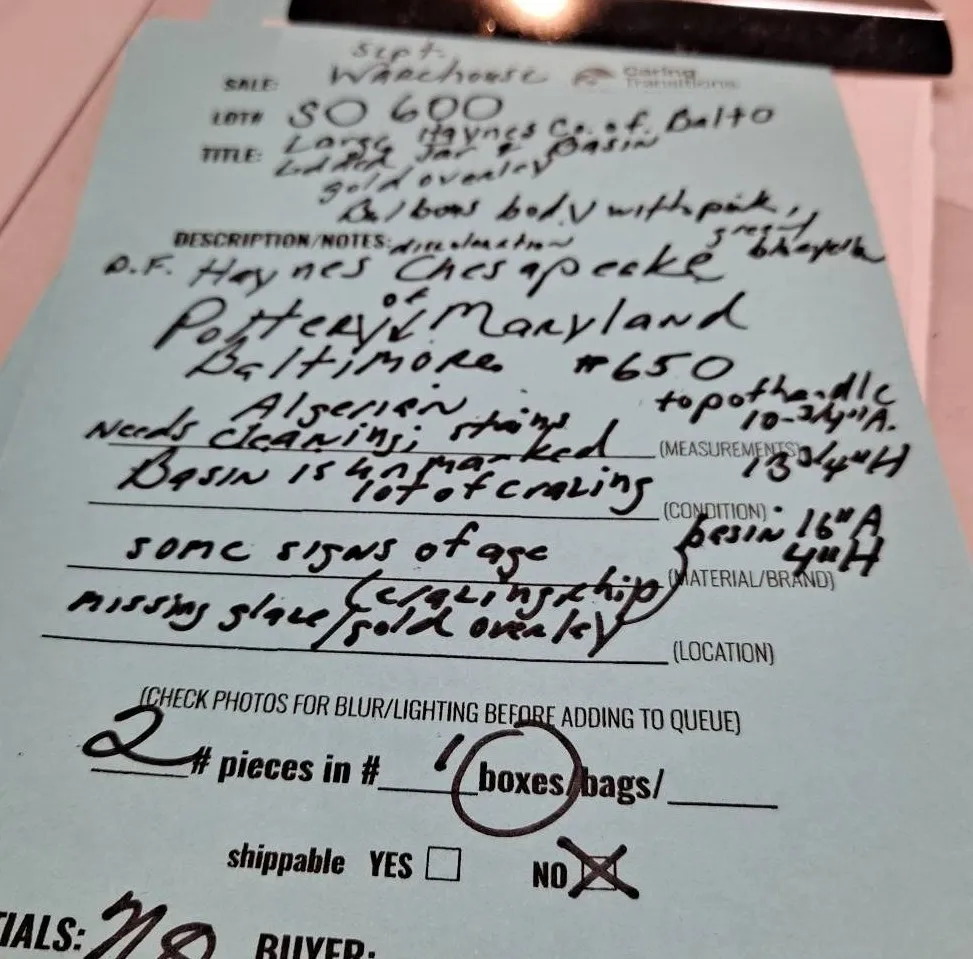 Sept.
SALE: Warehouse Caring Transitions
LOT# SO 600
Haynes Co. of Balto
TITLE: Large Jar & Basin
gold overley
Bulbous body with pink,
DESCRIPTION/NOTES: discoloration
D.F. Haynes Chesapeake
Pottery of Maryland
Baltimore #650
Algerian
top of handle
10-3/4"A.
Needs cleaning; stains (MEASUREMENTS)
13 3/4"H
Basin is unmarked
lot of crazing (CONDITION)
besin 16"A
4"H
some signs of age (MATERIAL/BRAND)
(crazing & chip)
missing glaze/gold overley (LOCATION)
(CHECK PHOTOS FOR BLUR/LIGHTING BEFORE ADDING TO QUEUE)
2 # pieces in # 1 boxes/bags/
shippable YES NO
TIALS: BUYER: